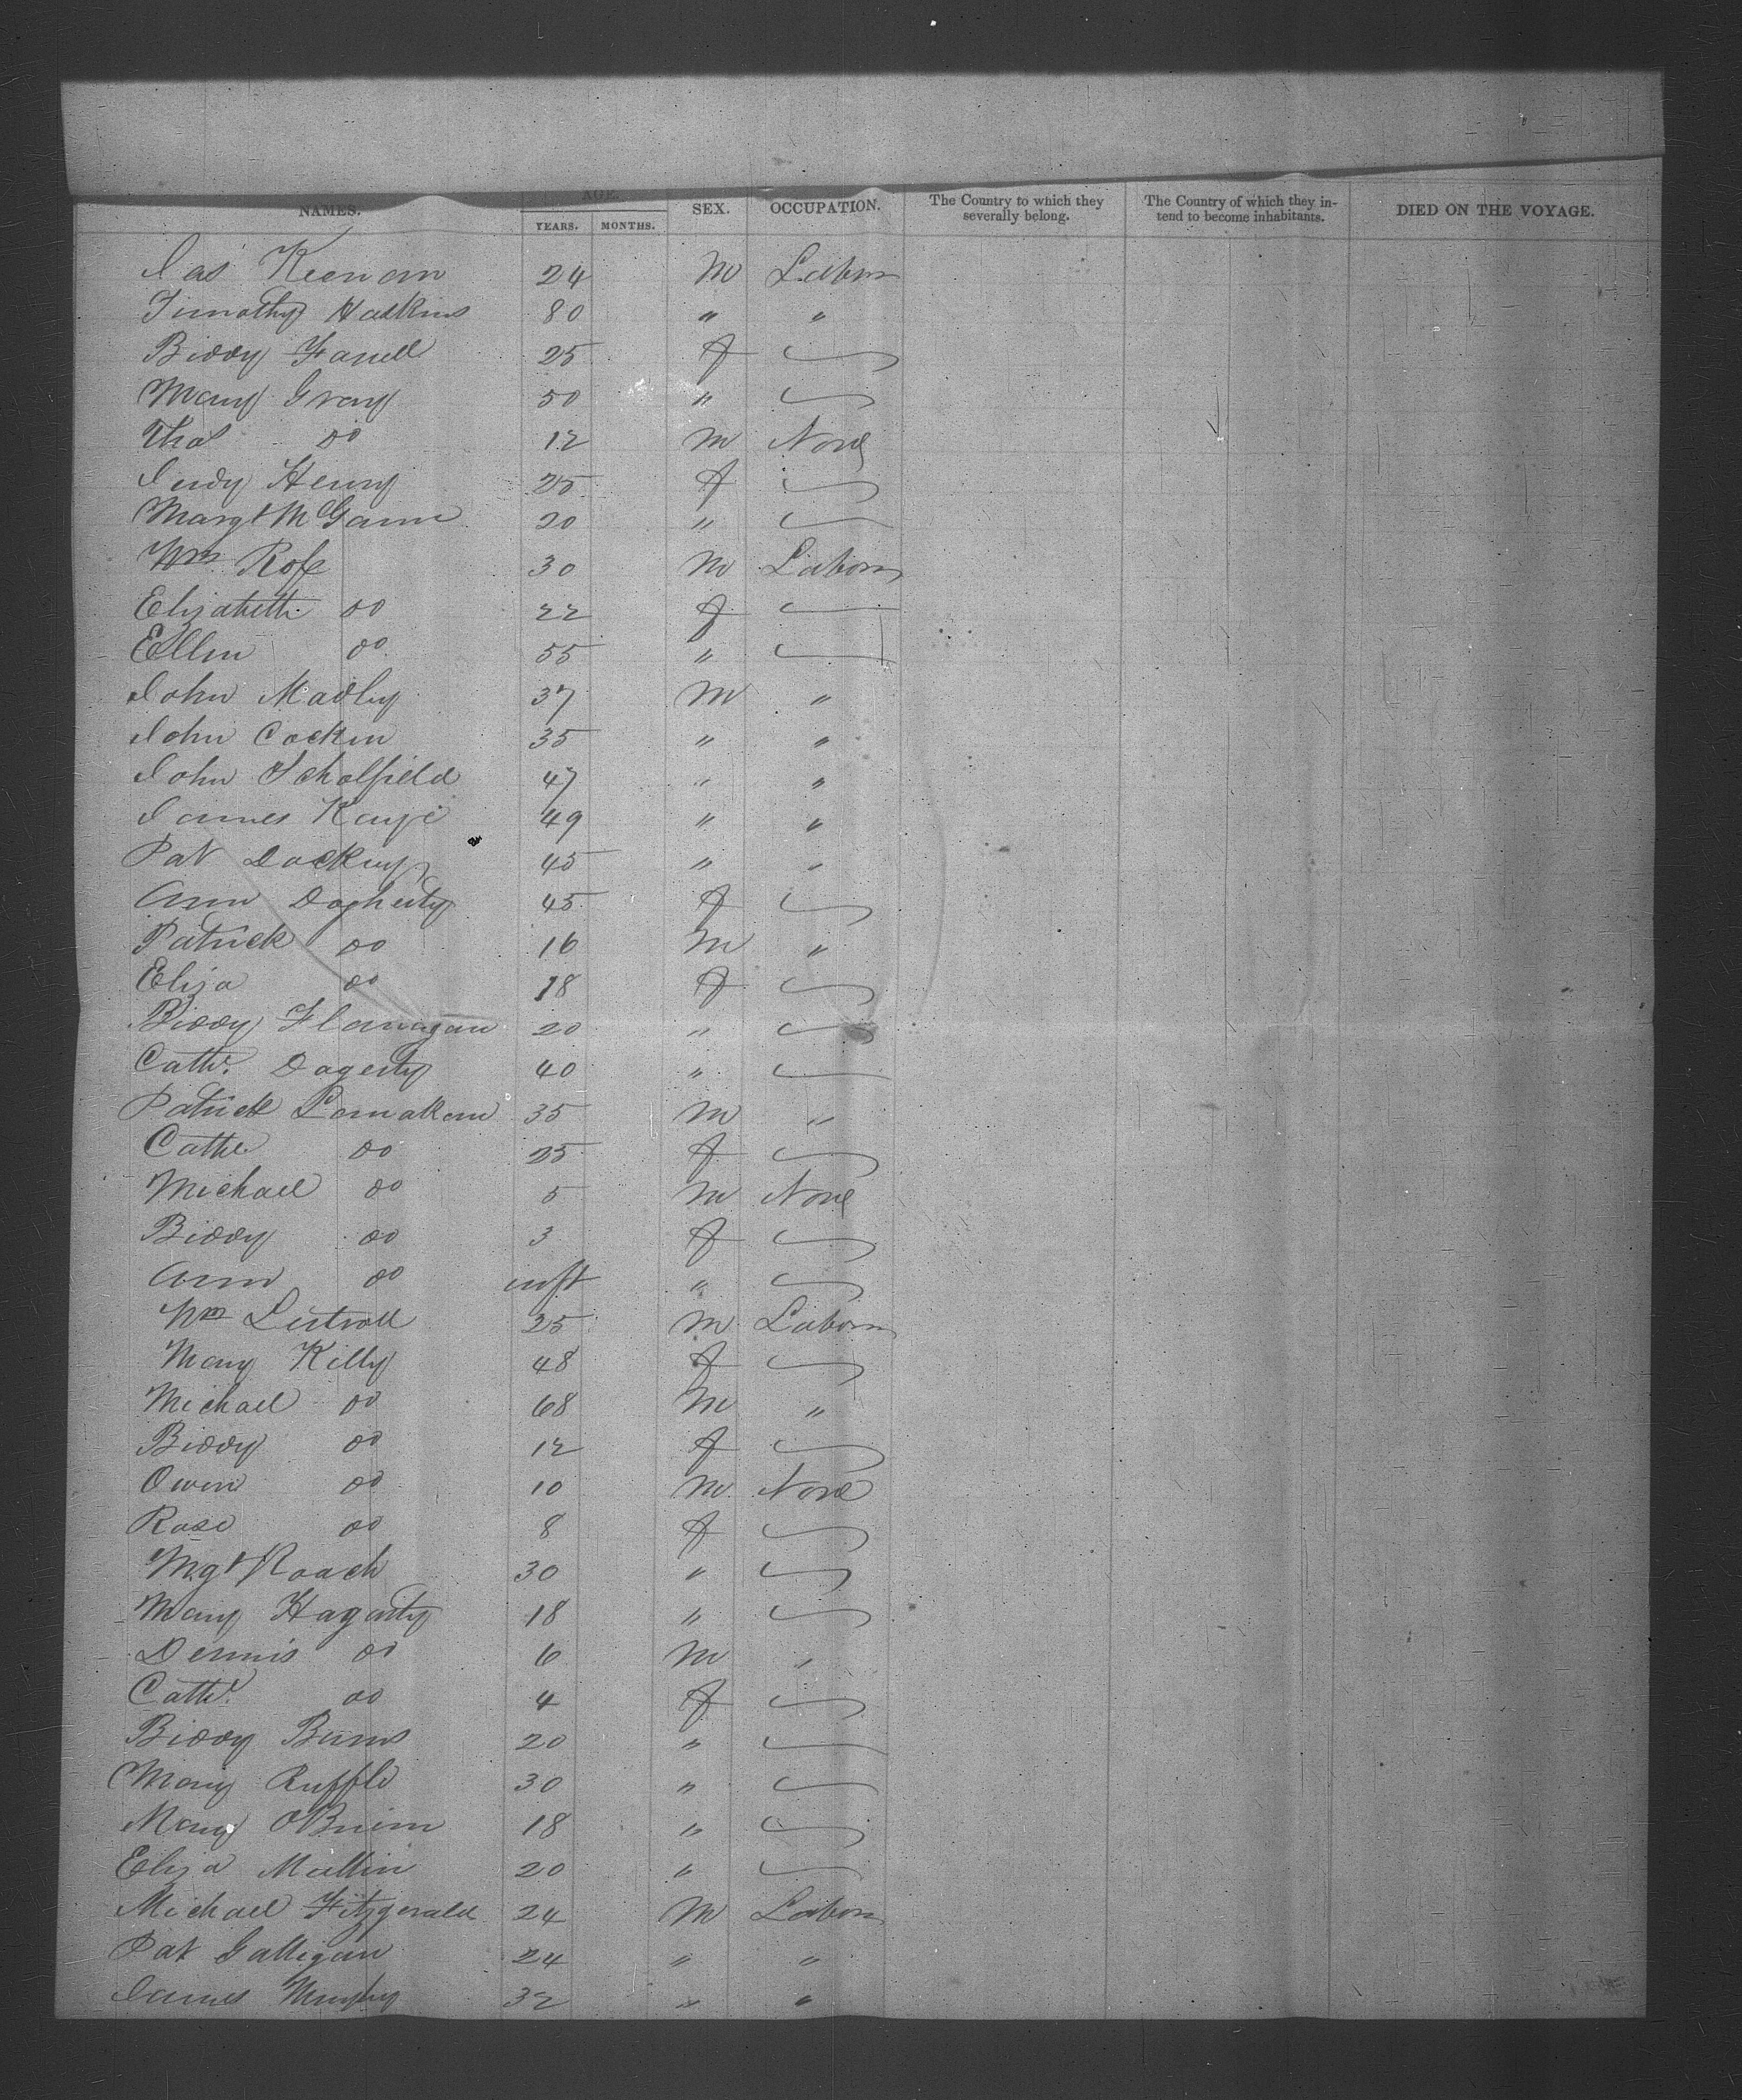 NAMES. AGE. SEX. OCCUPATION. The Country to which they severally belong. The Country of which they in-tend to become inhabitants. DIED ON THE VOYAGE.
YEARS. MONTHS.
Jas Keenan 24 M Labor
Timothy Haskins 80 " "
Biddy Farrell 25 f
Mary Gray 50 "
Thos do 12 M None
Judy Henry 25 f
Margt McGann 20 "
Wm Rose 30 M Labor
Elizabeth do 22 f
Ellen do 55 "
John Madly 37 M "
John Cockin 35 " "
John Scholfield 47 " "
James Kaye 49 " "
Pat Dockery 45 " "
Ann Dogherty 45 f
Patrick do 16 M "
Eliza do 18 f
Biddy Flanagan 20 "
Cathe. Dogerty 40 "
Patrick 35 M "
Cathe do 25 f
Michael do 5 M None
Biddy do 3 f
Ann do inft "
Wm 25 M Labor
Mary Killy 48 f
Michael do 68 M "
Biddy do 12 f
Owen do 10 M None
Rose do 8 f
Mgt Roach 30 "
Mary Hagarty 18 "
Dennis do 6 M "
Cathe. do 4 f
Biddy Burns 20 "
Mary Ruffle 30 "
Mary OBrien 18 "
Eliza Mullin 20 "
Michael Fitzgerald 24 M Labor
Pat Galligan 24 " "
James Murphy 32 " "